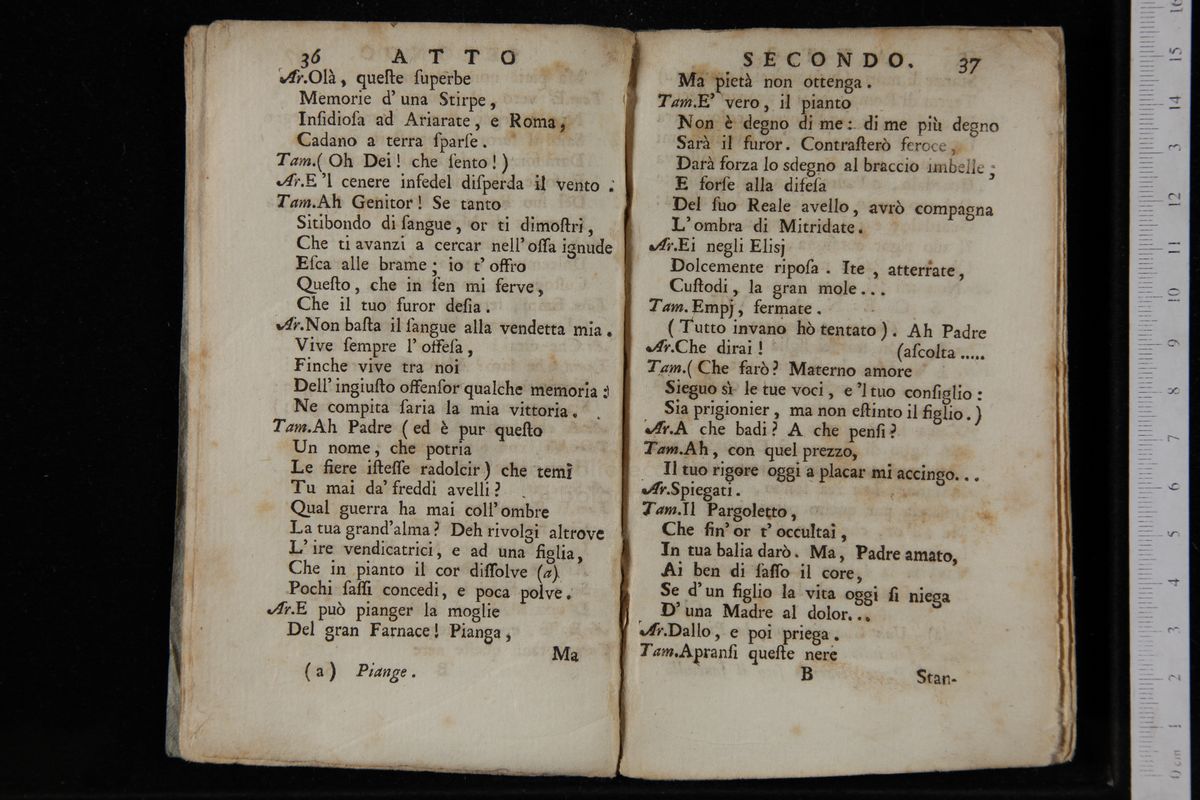 36 ATTO
Ar.Olà, queſte ſuperbe
Memorie d' una Stirpe,
Inſidioſa ad Ariarate, e Roma,
Cadano a terra ſparſe.
Tam.( Oh Dei! che ſento! )
Ar.E 'l cenere infedel diſperda il vento.
Tam.Ah Genitor! Se tanto
Sitibondo di ſangue, or ti dimoſtri,
Che ti avanzi a cercar nell' oſſa ignude
Eſca alle brame; io t' offro
Queſto, che in ſen mi ferve,
Che il tuo furor deſia.
Ar.Non baſta il ſangue alla vendetta mia.
Vive ſempre l' offeſa,
Finche vive tra noi
Dell' ingiuſto offenſor qualche memoria:
Ne compita ſaria la mia vittoria.
Tam.Ah Padre ( ed è pur queſto
Un nome, che potria
Le fiere iſteſſe radolcir) che temi
Tu mai da' freddi avelli?
Qual guerra ha mai coll' ombre
La tua grand'alma? Deh rivolgi altrove
L' ire vendicatrici, e ad una figlia,
Che in pianto il cor diſſolve (a)
Pochi ſaſſi concedi, e poca polve.
Ar.E può pianger la moglie
Del gran Farnace! Pianga,
Ma
(a) Piange.
SECONDO. 37
Ma pietà non ottenga.
Tam.E' vero, il pianto
Non è degno di me: di me più degno
Sarà il furor. Contraſterò feroce,
Darà forza lo sdegno al braccio imbelle;
E forſe alla difeſa
Del ſuo Reale avello, avrò compagna
L' ombra di Mitridate.
Ar.Ei negli Elisj
Dolcemente ripoſa. Ite, atterrate,
Cuſtodi, la gran mole...
Tam. Empj, fermate.
( Tutto invano hò tentato ). Ah Padre
Ar.Che dirai! (aſcolta .....
Tam.( Che farò? Materno amore
Sieguo sì le tue voci, e 'l tuo conſiglio:
Sia prigionier, ma non eſtinto il figlio.)
Ar.A che badi? A che penſi?
Tam.Ah, con quel prezzo,
Il tuo rigore oggi a placar mi accingo...
Ar.Spiegati.
Tam.Il Pargoletto,
Che fin' or t' occultai,
In tua balia darò. Ma, Padre amato,
Ai ben di ſaſſo il core,
Se d' un figlio la vita oggi ſi niega
D' una Madre al dolor...
Ar.Dallo, e poi priega.
Tam.Apranſi queſte nere
B Stan-